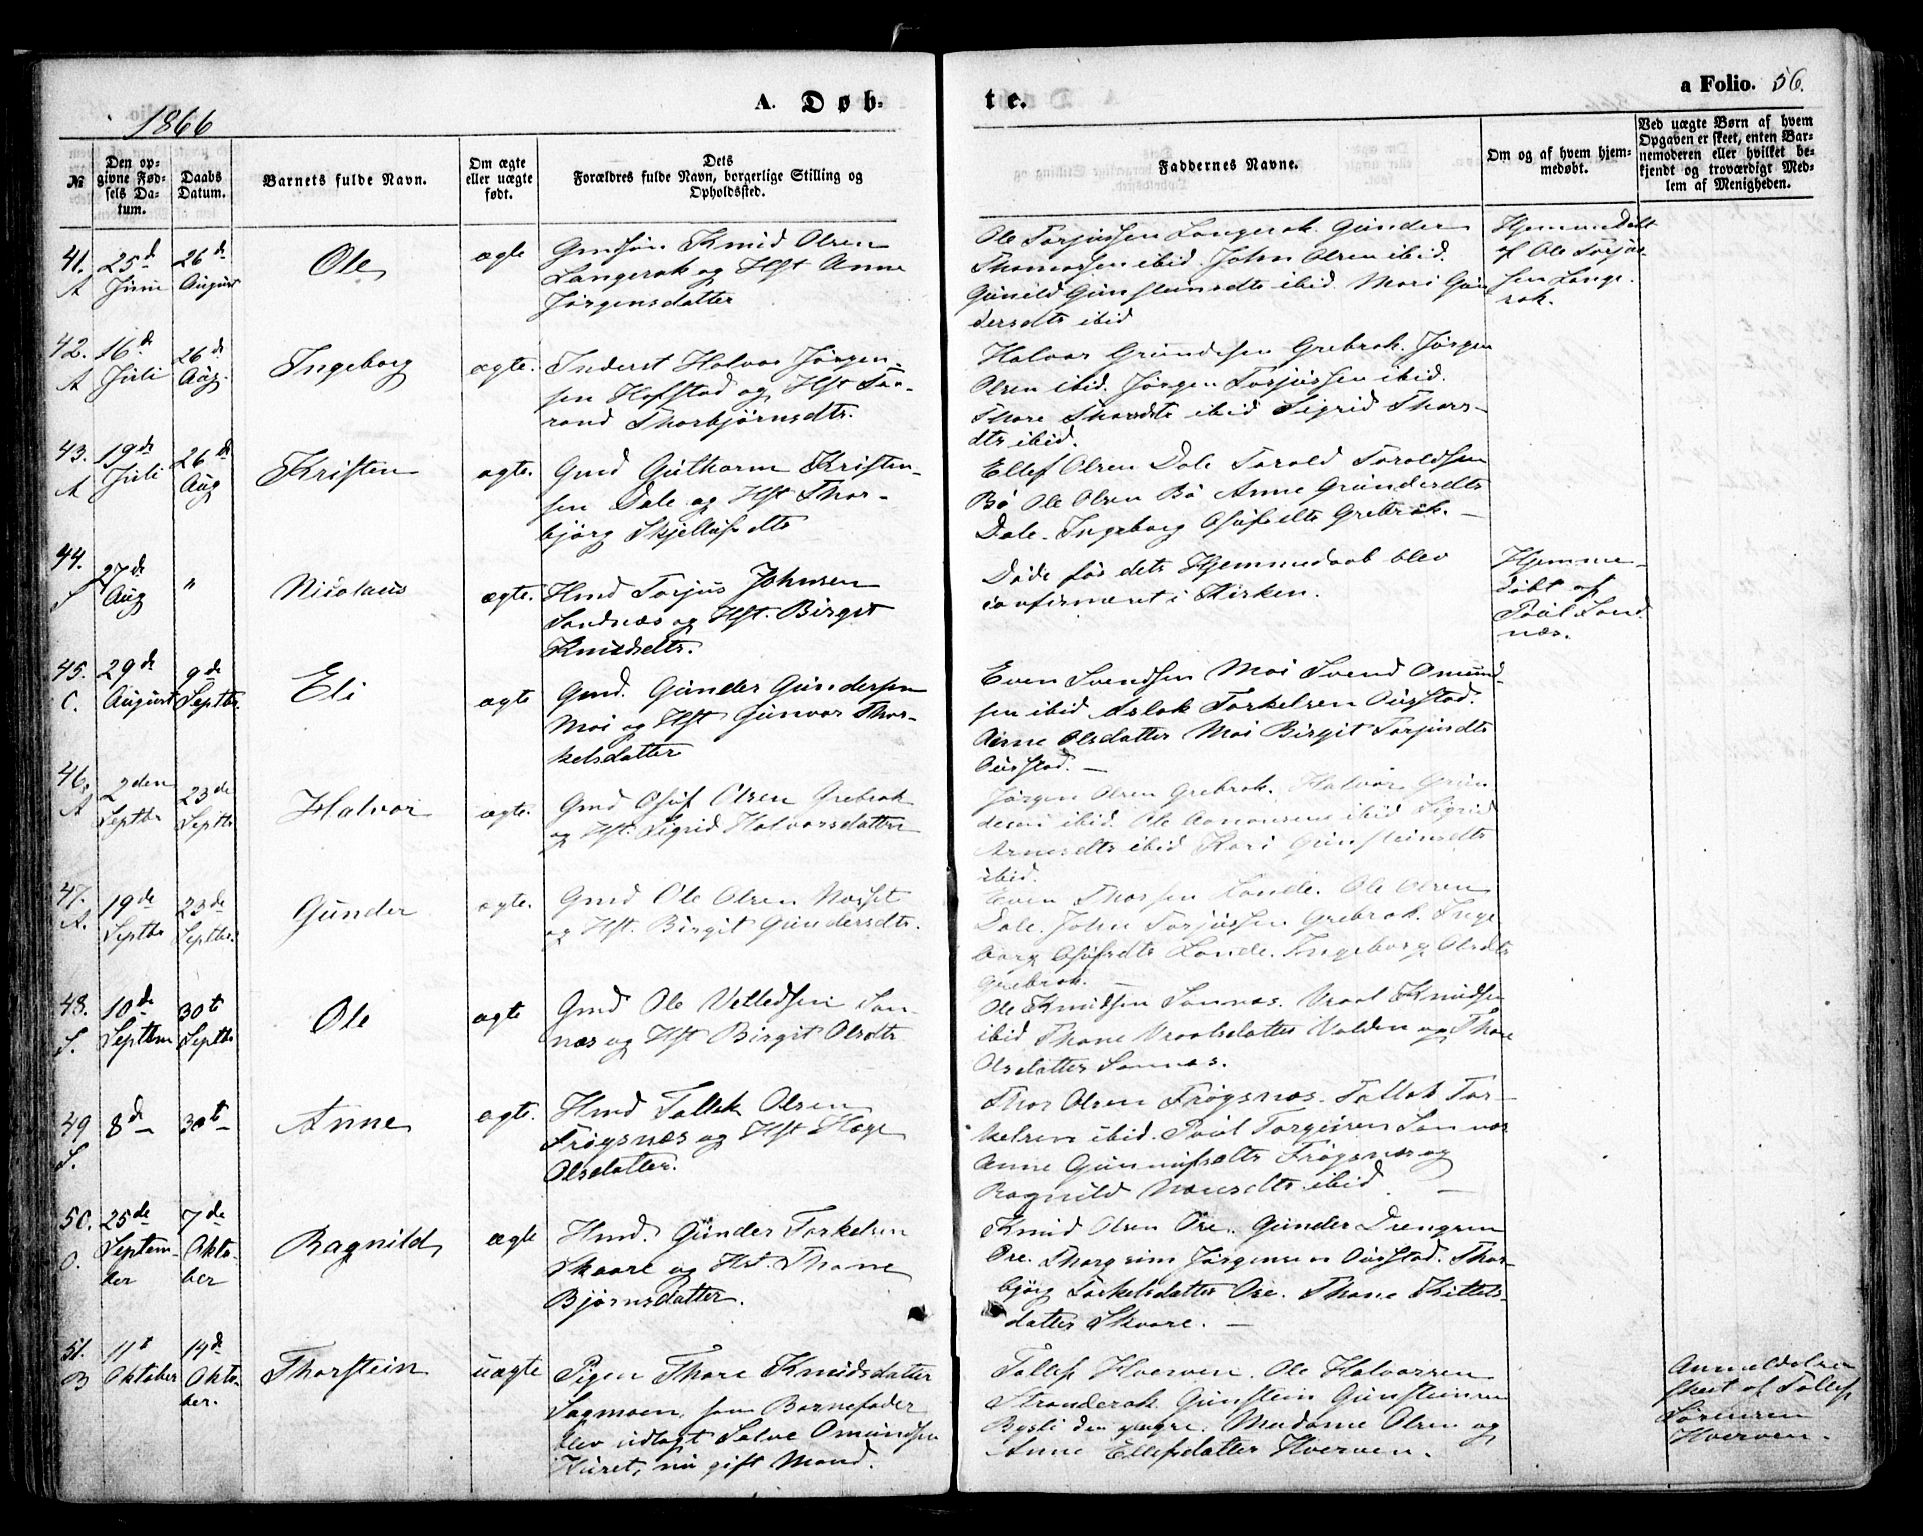 1866
A. Døb-
te.
a Folio. 56.
№
Den op-
givne Fød-
sels Da-
tum.
Daabs
Datum.
Barnets fulde Navn.
Om ægte
eller uægte
født.
Dets
Forældres fulde Navn, borgerlige Stilling og
Opholdssted.
Faddernes Navne.
Om og af hvem hjem-
medøbt.
Ved uægte Børn af hvem
Opgaven er skeet, enten Bar-
nemoderen eller hvilket be-
kjendt og troværdigt Med-
lem af Menigheden.
41.
A
25d
Juni
26d
August
Ole
ægte
Gmsøn Knud Olsen
Langerak og Hst Anne
Jørgensdatter
Ole Torjussen Langerak. Gunder
Thomassen ibid. John Olsen ibid.
Gunild Gunsteinsdts ibid. Mari Gun
dersdts ibid
Hjemmedøbt
af Ole Torjus-
sen Lange-
rak.
42.
A
16d
Juli
26d
Aug.
Ingeborg
ægte.
Inderst Halvor Jørgen-
sen Hofstad og Hst Tar-
rand Thorbjørnsdts.
Halvor Gundersen Grebrok. Jørgen
Olsen ibid. Jørgen Torjussen ibid.
Thore ibid Sigrid Thors-
dts ibid.
43.
A
19de
Juli
26d
Aug
Kristen
ægte.
Gmd Guthorm Kristen-
sen Dale og Hst Thor-
bjørg Skjellufsdts
Ellef Olsen Dale Torold Toroldsen
Bø Ole Olsen Bø Anne Gundersdts
Dale. Ingeborg Osufsdts Grebrok. —
44.
S
27de
Aug
"
Nicolaus
ægte.
Hmd Torjus Johnsen
Sandnæs og Hst. Birgit
Knudsdts.
Døde før dets Hjemmedaab blev
confirmeret i Kirken.
Hjemme-
døbt af
Paul Sand
næs.
45.
C.
29de
August
9de
Septbr
Eli
ægte
Gmd. Gunder Gundersen
Moi og Hst Gunvor Thor-
kelsdatter
Even Svendsen Moi Svend Omund-
sen ibid Aslak Torkelsen Ousstad.
Anne Olsdatter Moi Birgit Torjusdts
Ousstad. —
46.
A
2den
Septbr
23de
Septbr
Halvor
ægte.
Gmd Osuf Olsen Grebrok
og Hst. Sigrid Halvorsdatter
Jørgen Olsen Grebrok. Halvor Gun
dersen ibid. Ole Aanonsens ibid Sigrid
Arnesdts ibid Kari Gunsteinsdts
ibid.
47.
A.
19de
Septbr
23de
Septbr.
Gunder
ægte.
Gmd Ole Olsen Næsset
og Hst. Birgit Gundersdts.
Even Thorsen Lande. Ole Olsen
Dale. John Torjussen Grebrok. Inge
borg Osufsdts Lande. Ingeborg Olsdts
Grebrok. —
48.
S.
10de
Septbm
30t
Septbr
Ole
ægte
Gmd Ole Velledsen San-
næs og Hst Birgit Olsdts
Ole Knudsen Sannæs. Vraal Knudsen
ibid Thone Vraalsdatter Valden og Thore
Olsdatter Sannæs.
49
S.
8de
30t
Anne
ægte.
Hmd Tallak Olsen
Frøysnæs og Hst Hæge
Olsdatter.
Thor Olsen Frøysnæs. Tallak Tor-
kelsen ibid. Paul Torgusen Sannæs
Anne Gunnufsdts Frøysnæs og
Ragnild Nænsdts ibid. —
50.
O.
25de
Septem-
ber
7de
Okto-
ber
Ragnild
ægte
Hmd. Gunder Torkelsen
Skaare og Hst. Thone
Bjørnsdatter.
Knud Olsen Ose. Gunder Drengsen
Ose. Thorgrim Jørgensen Ousstad. Thor-
bjørg Torkelsdatter Ose. Thone Kittels-
datter Skaare. —
51.
B
11t
Oktober
14d
Okto-
ber.
Thorstein
uægte
Pigen Thore Knudsdatter
Sagmoen, som Barnefader
blev udlagt Salve Omundsen
Kuret, nu gift Mand.
Tallef Hverven. Ole Halvorsen
Stranderak Gunstein Gunsteinsen
Bygli den yngre. Madame Olsen og
Anne Ellefsdatter Hverven.
Anmeldelsen
skeet af Tallef
Sørensen
Hverven.